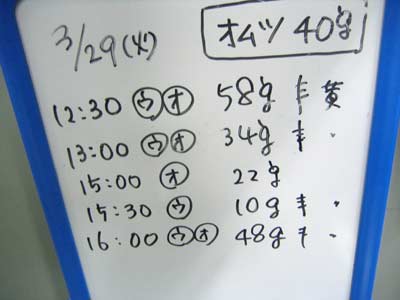 3/29(火) オムツ 40g
12:30 ㋒㋔ 58g キ 黄
13:00 ㋒㋔ 34g キ 〃
15:00 ㋔ 22g
15:30 ㋒ 10g キ 〃
16:00 ㋒㋔ 48g キ 〃